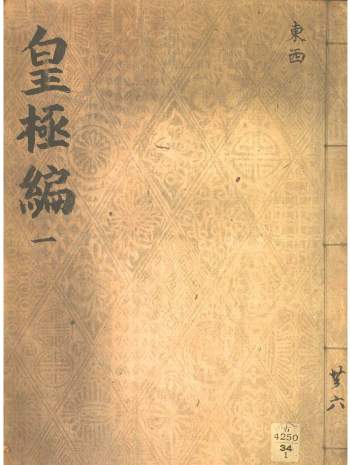 東西
皇極編
一
共六
古
4250
34
1